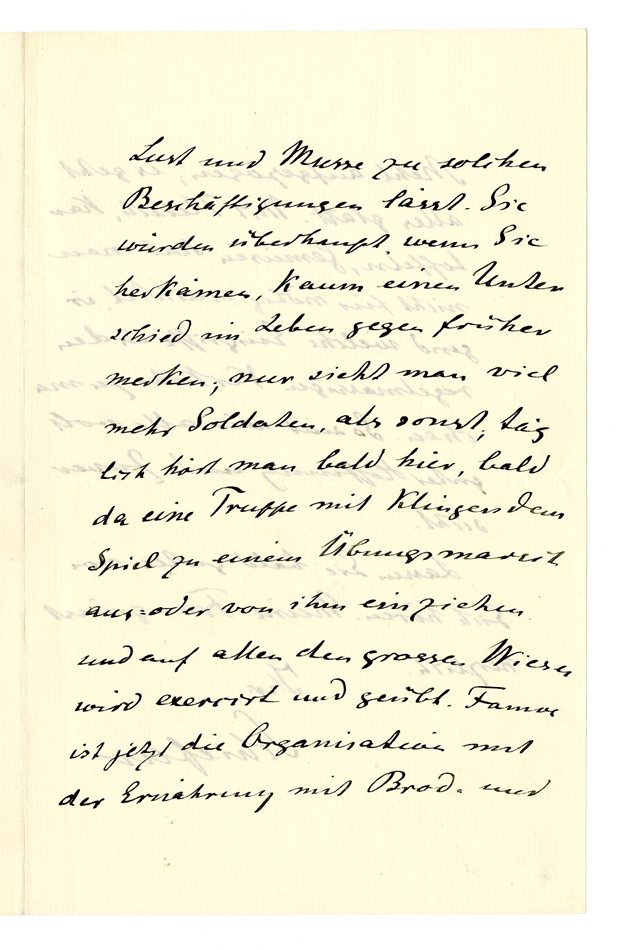 Lust und Musse zu solchen
Beschäftigungen lässt. Sie
würden überhaupt, wenn Sie
herkämen, kaum einen Unter
schied im Leben gegen früher
merken; nur sieht man viel
mehr Soldaten, als sonst, täg
lich hört man bald hier, bald
da eine Truppe mit Klingendem
Spiel zu einem Übungsmarsch
aus= oder von ihm einziehen
und auf allen den grossen Wiesen
wird exercirt und geübt. Famos
ist jetzt die Organisation mit
der Ernährung mit Brod- und